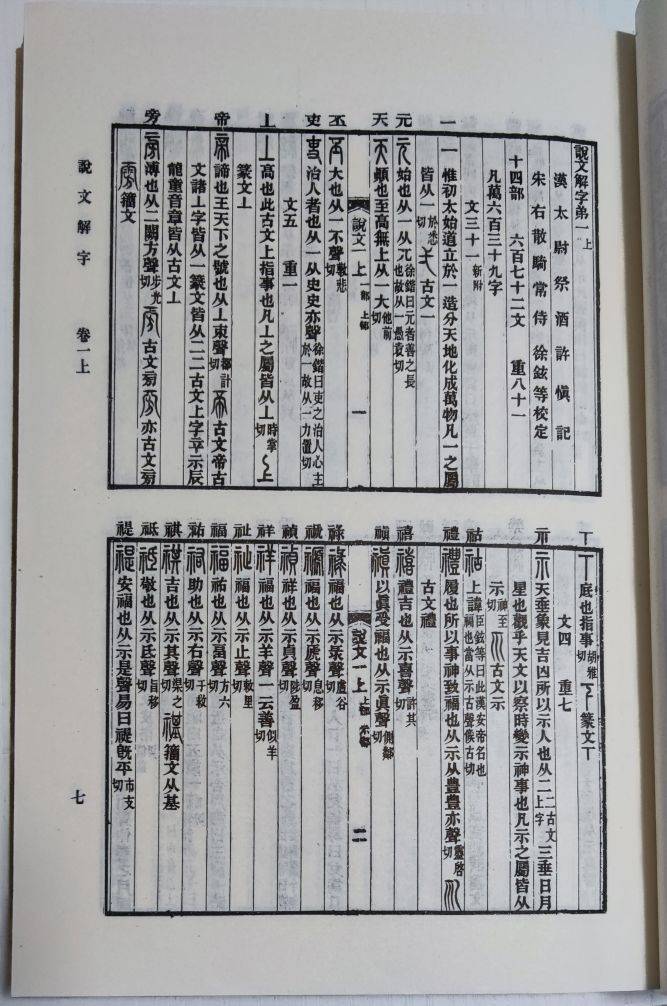 一
元
天
丕
吏
丄
帝
旁
說文解字弟一上
漢太尉祭酒許愼記
宋右散騎常侍徐鉉等校定
十四部 六百七十二文 重八十一
凡萬六百三十九字
文三十一新附
一惟初太始道立於一造分天地化成萬物凡一之屬
皆从一於悉切弌古文一
元始也从一从兀徐鍇曰元者善之長也故从一愚袁切
天顚也至高無上从一大他前切
說文一上 一部 上部 一
丕大也从一不聲敷悲切
吏治人者也从一从史史亦聲徐鍇曰吏之治人心主於一故从一力置切
文五 重一
丄高也此古文上指事也凡丄之屬皆从丄時掌切上
篆文丄
帝諦也王天下之號也从丄朿聲都計切帝古文帝古
文諸丄字皆从一篆文皆从二二古文上字䇂示辰
龍童音章皆从古文丄
旁溥也从二闕方聲步光切㫄古文㫄㫄亦古文㫄
雱籒文
說文解字 卷一上
丅
示
祜
禮
禧
禛
祿
禠
禎
祥
祉
福
祐
祺
祗
禔
丅底也指事胡雅切下篆文丅
文四 重七
示天垂象見吉凶所以示人也从二二古文上字三垂日月
星也觀乎天文以察時變示神事也凡示之屬皆从
示神至切示古文示
祜上諱臣鉉等曰此漢安帝名也福也當从示古聲候古切
禮履也所以事神致福也从示从豊豊亦聲靈啓切𠃞
古文禮
禧禮吉也从示喜聲許其切
禛以眞受福也从示眞聲側鄰切
說文一上 上部 示部 二
祿福也从示彔聲盧谷切
禠福也从示虒聲息移切
禎祥也从示貞聲陟盈切
祥福也从示羊聲一云善似羊切
祉福也从示止聲敕里切
福祐也从示畐聲方六切
祐助也从示右聲于救切
祺吉也从示其聲渠之切禥籒文从基
祗敬也从示氐聲旨移切
禔安福也从示是聲易曰禔旣平市支切
七